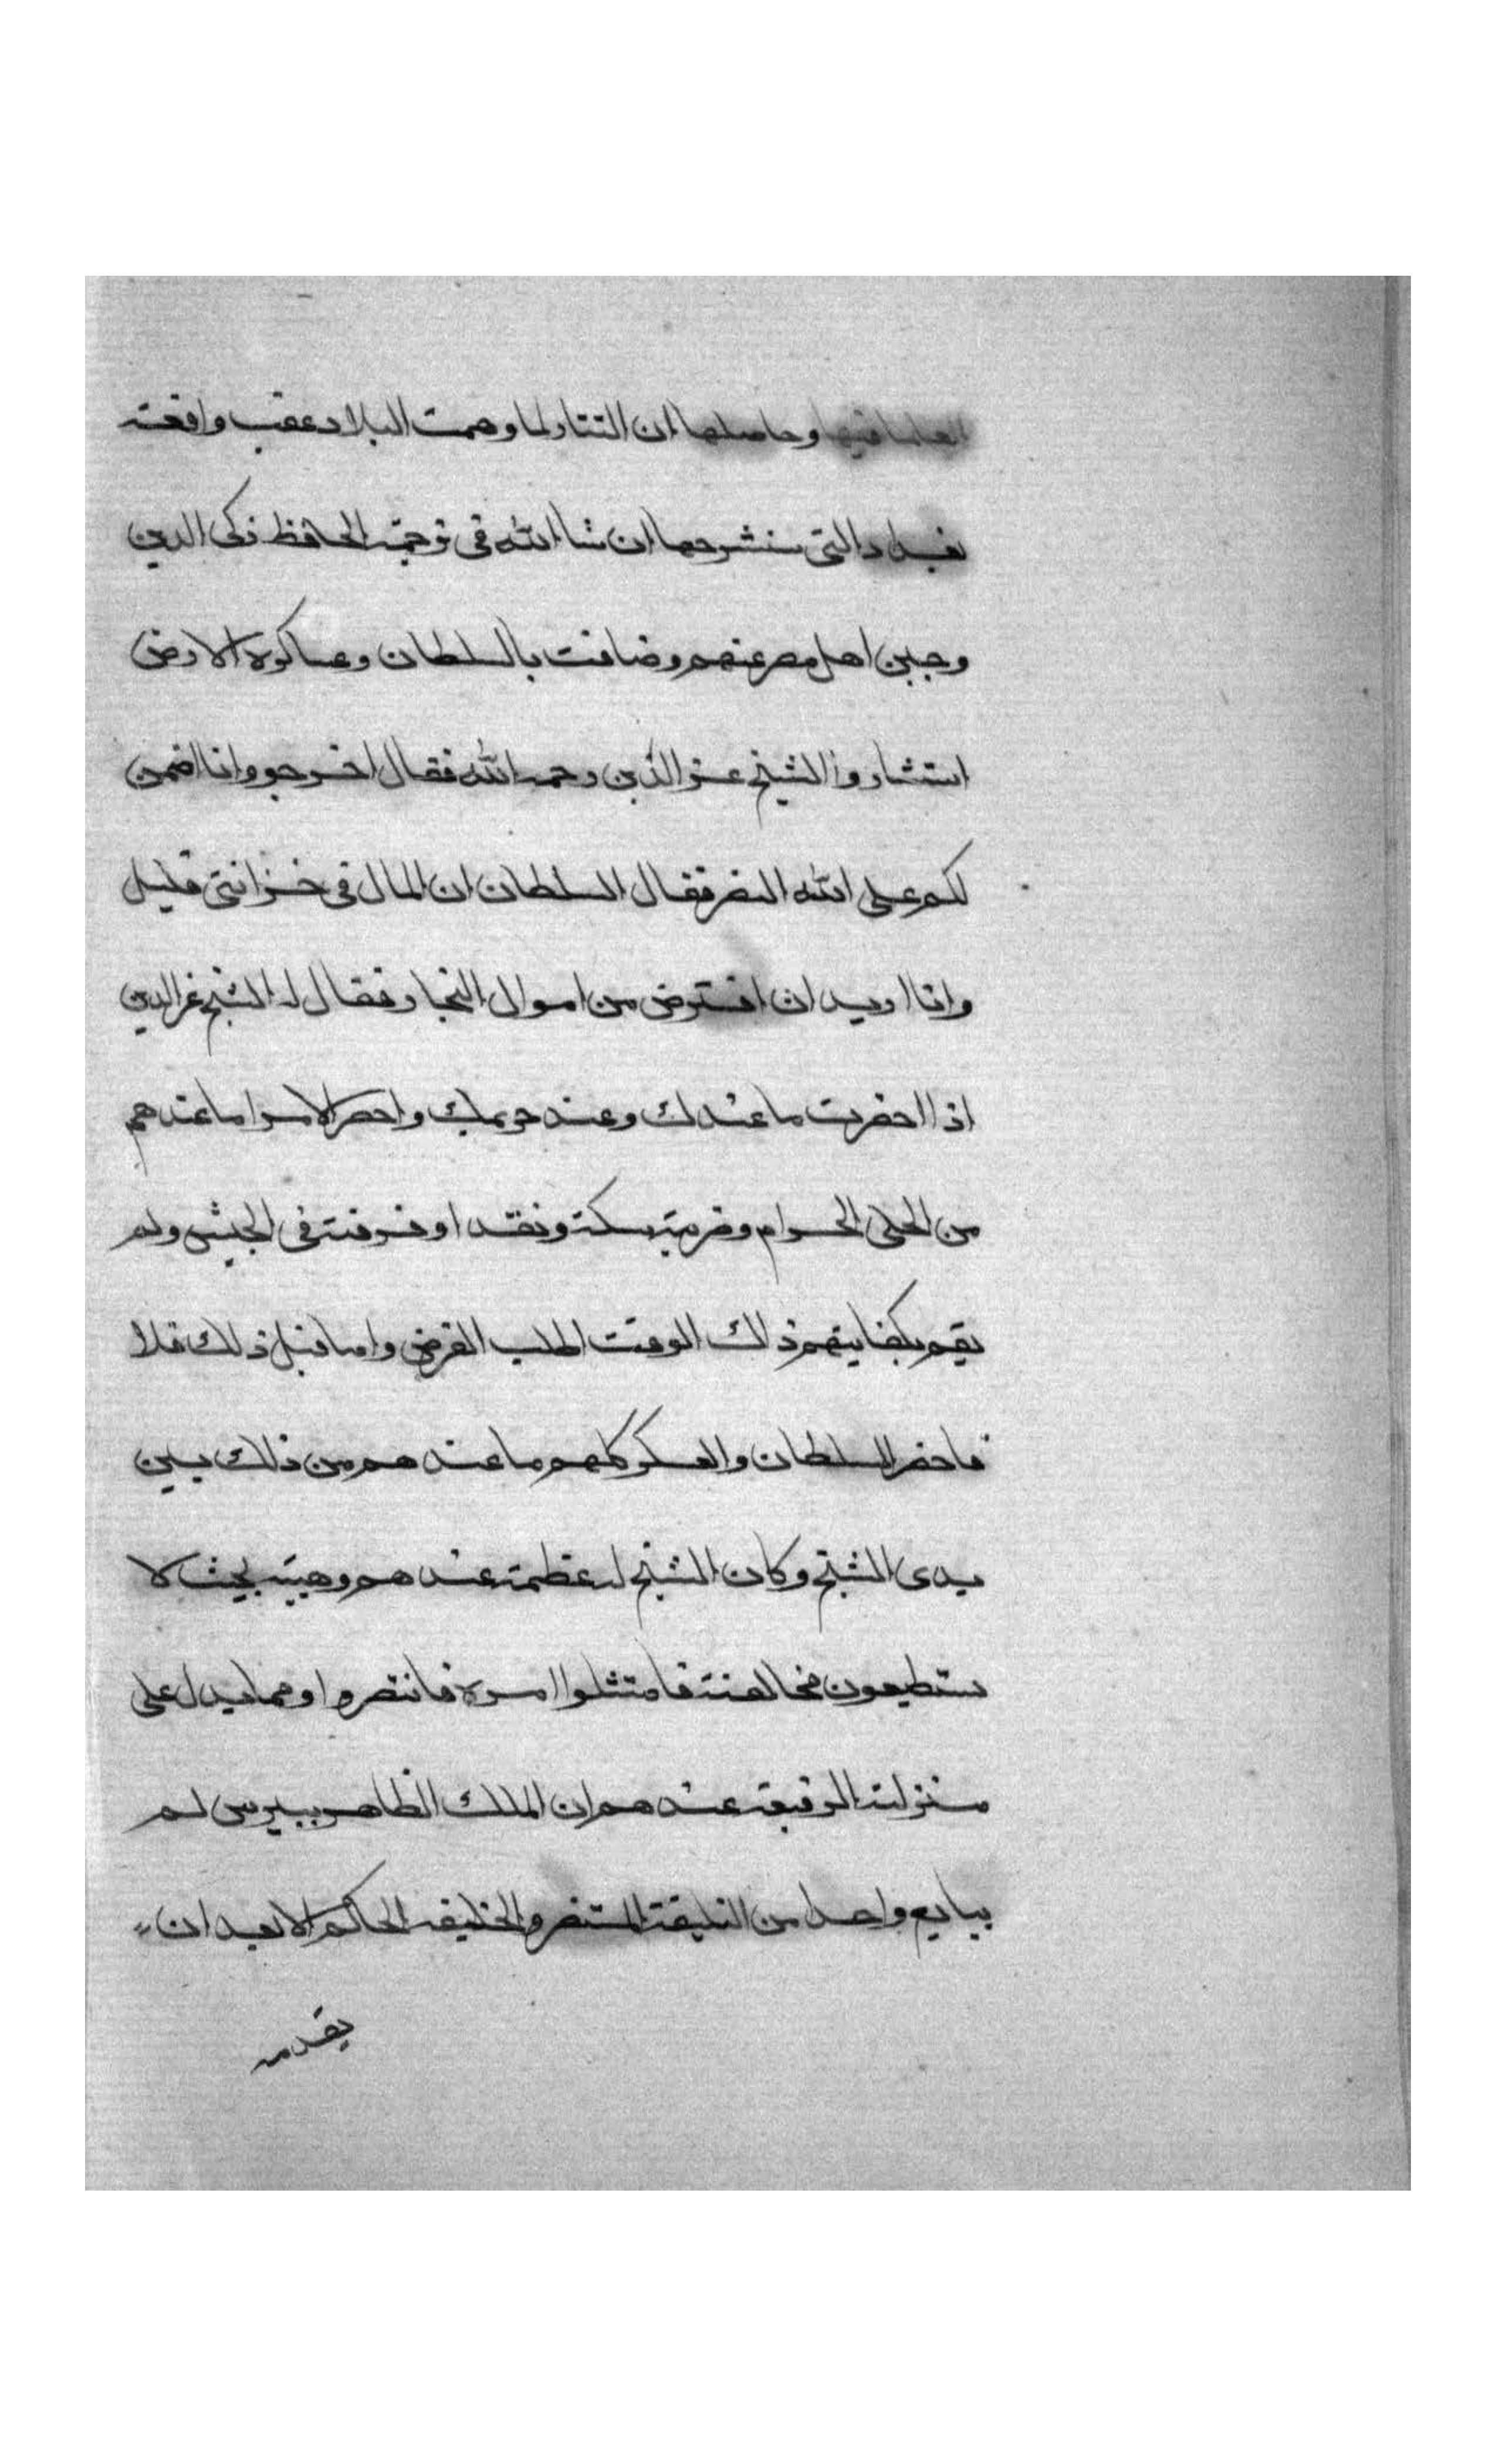 العلما فيها وحاصلها ان التتار لما دهمت البلاد عقب واقعة
بغداد التي سنشرحها ان شا الله في ترجمة الحافظ زكى الدين
وجبن اهل مصر عنهم وضاقت بالسلطان وعساكره الارض
استشاروا الشيخ عز الدين رحمه الله فقال اخرجو وانا اضمن
لكم على الله النصر فقال السلطان ان المال في خزانتي قليل
وانا اريد ان اقترض من اموال التجار فقال له الشيخ عز الدين
اذا احضرت ما عندك وعند حريمك واحضر الامرا ما عندهم
من الحلى الحرام وضربته سكة ونقدا وفرقته في الجيش ولم
يقم بكفايتهم ذلك الوقت اطلب القرض واما قبل ذلك فلا
فاحضر السلطان والعسكر كلهم ما عندهم من ذلك بين
يدى الشيخ وكان الشيخ له عظمة عندهم وهيبة بحيث لا
يستطيعون مخالفته فامتثلوا امره فانتصروا ومما يدل على
منزلته الرفيعة عندهم ان الملك الظاهر بيبرس لم
يبايع واحدا من الخليفة المستنصر والخليفة الحاكم الا بعد ان
يقدمه